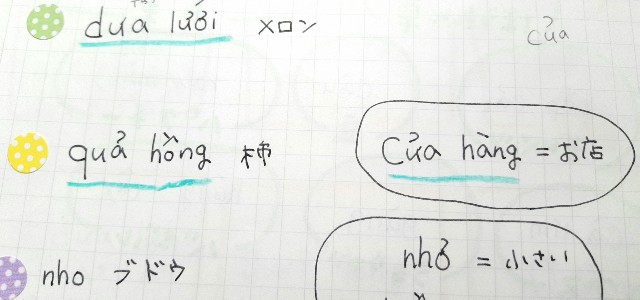 dưa lưới メロン
cửa
quả hồng 柿
Cửa hàng = お店
nho ブドウ
nhỏ = 小さい